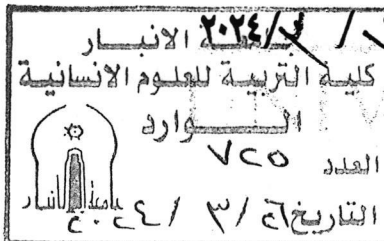 ٢٠٢٤/٣/
جامعة الانبار
كلية التربية للعلوم الانسانية
الــوارد
العدد ٧٢٥
التاريخ ٢٠٢٤ / ٣ /